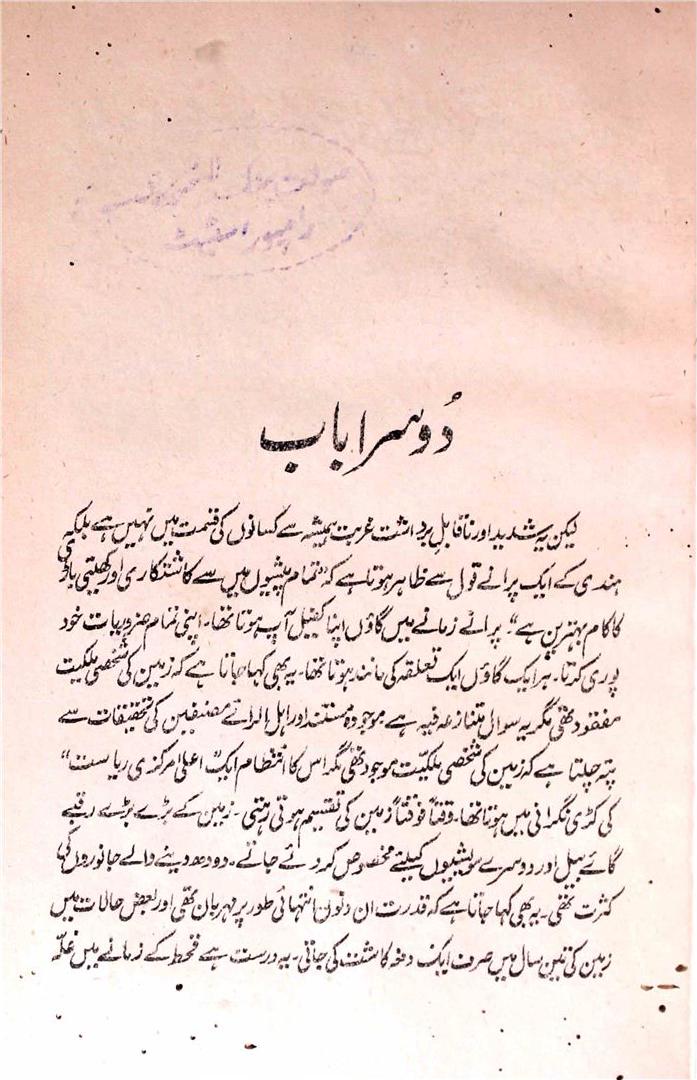 رامپور اسٹیٹ
دُوسرا باب
لیکن یہ شدید اور ناقابلِ برداشت غربت ہمیشہ سے کسانوں کی قسمت میں نہیں ہے بلکہ
ہندی کے ایک پرانے قول سے ظاہر ہوتا ہے کہ "تمام پیشوں میں سے کاشتکاری اور کھیتی باڑی
کا کام بہترین ہے"۔ پرانے زمانے میں گاؤں اپنا کفیل آپ ہوتا تھا۔ اپنی تمام ضروریات خود
پوری کرتا۔ ہر ایک گاؤں ایک تعلقہ کی مانند ہوتا تھا۔ یہ بھی کہا جاتا ہے کہ زمین کی شخصی ملکیت
مفقود تھی مگر یہ سوال متنازعہ فیہ ہے موجودہ مستند اور اہل الرائے مصنفین کی تحقیقات سے
پتہ چلتا ہے کہ زمین کی شخصی ملکیّت موجود تھی مگر اس کا انتظام ایک "اعلیٰ مرکزی ریاست"
کی کڑی نگرانی میں ہوتا تھا۔ وقتاً فوقتاً زمین کی تقسیم ہوتی رہتی۔ زمین کے بڑے بڑے رقبے
گائے بیل اور دوسرے مویشیوں کیلئے مخصوص کر دئے جاتے۔ دودھ دینے والے جانوروں کی
کثرت تھی۔ یہ بھی کہا جاتا ہے کہ قدرت ان دنوں انتہائی طور پر مہربان تھی اور بعض حالات میں
زمین کی تین سال میں صرف ایک دفعہ کاشت کی جاتی۔ یہ درست ہے قحط کے زمانے میں غلّہ